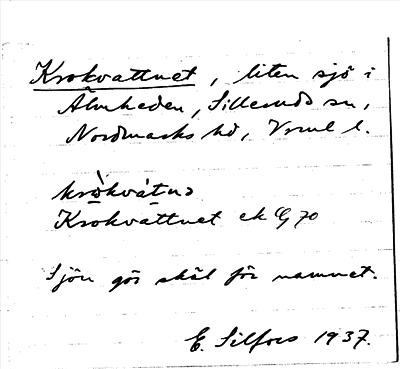 Krokvattnet, liten sjö i
Älvheden, Sillerud sn,
Nordmarks hd, Vrml l.
kròkvátnə
Krokvattnet ek G 70
Sjön gör skäl för namnet.
E. Silfors 1937.